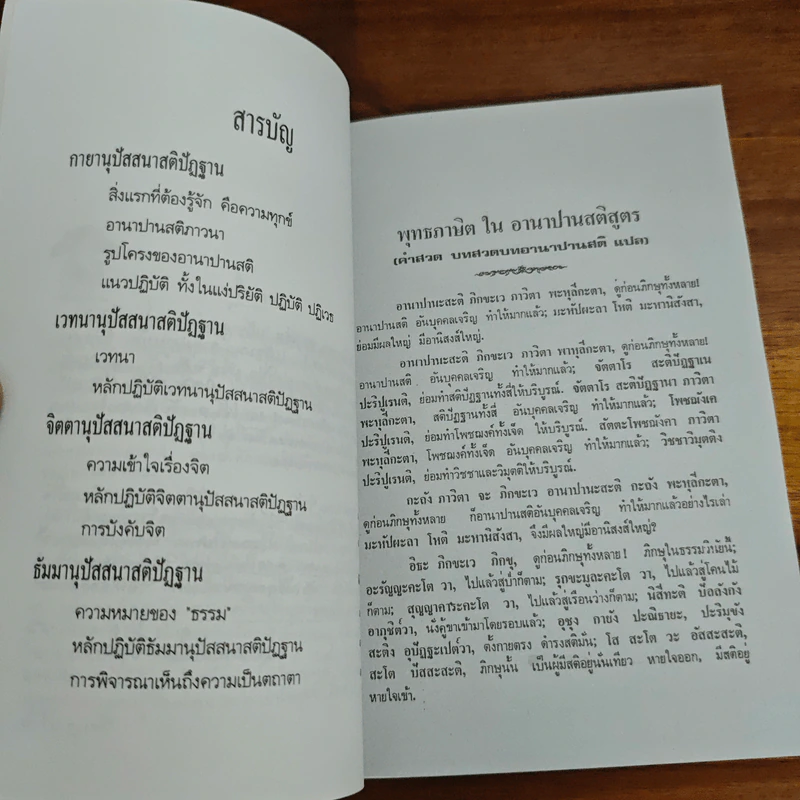 สารบัญ
กายานุปัสสนาสติปัฏฐาน
สิ่งแรกที่ต้องรู้จัก คือความทุกข์
อานาปานสติภาวนา
รูปโครงของอานาปานสติ
แนวปฏิบัติ ทั้งในแง่ปริยัติ ปฏิบัติ ปฏิเวธ
เวทนานุปัสสนาสติปัฏฐาน
เวทนา
หลักปฏิบัติเวทนานุปัสสนาสติปัฏฐาน
จิตตานุปัสสนาสติปัฏฐาน
ความเข้าใจเรื่องจิต
หลักปฏิบัติจิตตานุปัสสนาสติปัฏฐาน
การบังคับจิต
ธัมมานุปัสสนาสติปัฏฐาน
ความหมายของ "ธรรม"
หลักปฏิบัติธัมมานุปัสสนาสติปัฏฐาน
การพิจารณาเห็นถึงความเป็นตถาตา
พุทธภาษิต ใน อานาปานสติสูตร
(คำสวด บทสวดบทอานาปานสติ แปล)
อานาปานะสะติ ภิกขะเว ภาวิตา พะหุลีกะตา, ดูก่อนภิกษุทั้งหลาย!
อานาปานสติ อันบุคคลเจริญ ทำให้มากแล้ว; มะหัปผะลา โหติ มะหานิสังสา,
ย่อมมีผลใหญ่ มีอานิสงส์ใหญ่.
อานาปานะสะติ ภิกขะเว ภาวิตา พาหุลีกะตา, ดูก่อนภิกษุทั้งหลาย!
อานาปานสติ อันบุคคลเจริญ ทำให้มากแล้ว; จัตตาโร สะติปัฏฐาเน
ปะริปูเรนติ, ย่อมทำสติปัฏฐานทั้งสี่ให้บริบูรณ์. จัตตาโร สะติปัฏฐานา ภาวิตา
พะหุลีกะตา, สติปัฏฐานทั้งสี่ อันบุคคลเจริญ ทำให้มากแล้ว; โพชฌังเค
ปะริปูเรนติ, ย่อมทำโพชฌงค์ทั้งเจ็ด ให้บริบูรณ์. สัตตะโพชฌังคา ภาวิตา
พะหุลีกะตา, โพชฌงค์ทั้งเจ็ด อันบุคคลเจริญ ทำให้มากแล้ว; วิชชาวิมุตติง
ปะริปูเรนติ, ย่อมทำวิชชาและวิมุตติให้บริบูรณ์.
กะถัง ภาวิตา จะ ภิกขะเว อานาปานะสะติ กะถัง พะหุลีกะตา,
ดูก่อนภิกษุทั้งหลาย ก็อานาปานสติอันบุคคลเจริญ ทำให้มากแล้วอย่างไรเล่า
มะหัปผะลา โหติ มะหานิสังสา, จึงมีผลใหญ่มีอานิสงส์ใหญ่?
อิธะ ภิกขะเว ภิกขุ, ดูก่อนภิกษุทั้งหลาย! ภิกษุในธรรมวินัยนี้;
อะรัญญะคะโต วา, ไปแล้วสู่ป่าก็ตาม; รุกขะมูละคะโต วา, ไปแล้วสู่โคนไม้
ก็ตาม; สุญญาคาระคะโต วา, ไปแล้วสู่เรือนว่างก็ตาม; นิสีทะติ บัลลังกัง
อาภุชิต๎วา, นั่งคู้ขาเข้ามาโดยรอบแล้ว; อุชุง กายัง ปะณิธายะ, ปะริมุขัง
สะติง อุปัฏฐะเปต๎วา, ตั้งกายตรง ดำรงสติมั่น; โส สะโต วะ อัสสะสะติ,
สะโต ปัสสะสะติ, ภิกษุนั้น เป็นผู้มีสติอยู่นั่นเทียว หายใจออก, มีสติอยู่
หายใจเข้า.